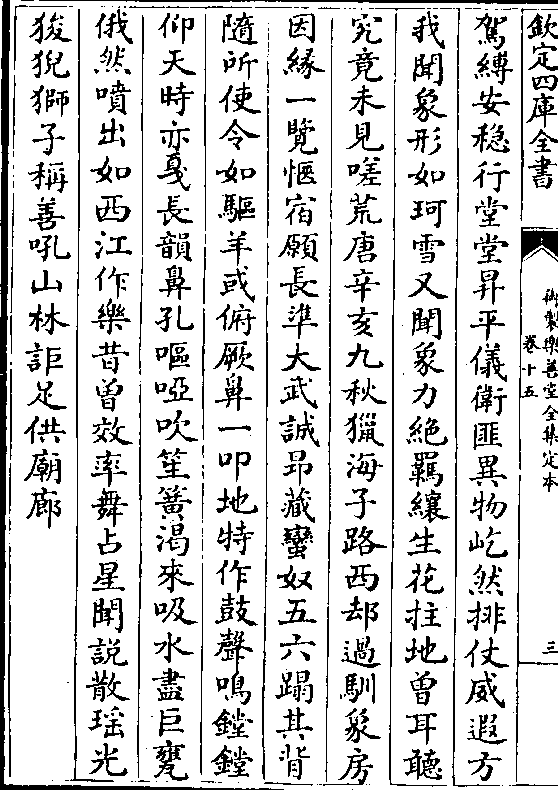 欽定四庫全書
御製樂善堂全集定本
卷十五
三
駕縳安穏行堂堂昇平儀衛匪異物屹然排仗威遐方
我聞象形如珂雪又聞象力絶羈纕生花拄地曾耳聽
究竟未見嗟荒唐辛亥九秋獵海子路西却過馴象房
因緣一覽愜宿願長準大武誠昂藏蠻奴五六蹋其背
隨所使令如驅羊或俯厥鼻一叩地特作鼓聲鳴鏜鏜
仰天時亦戛長韻鼻孔嘔啞吹笙簧渴來吸水盡巨甕
俄然噴出如西江作樂昔曽效率舞占星聞説散瑶光
狻猊獅子稱善吼山林詎足供廟廊